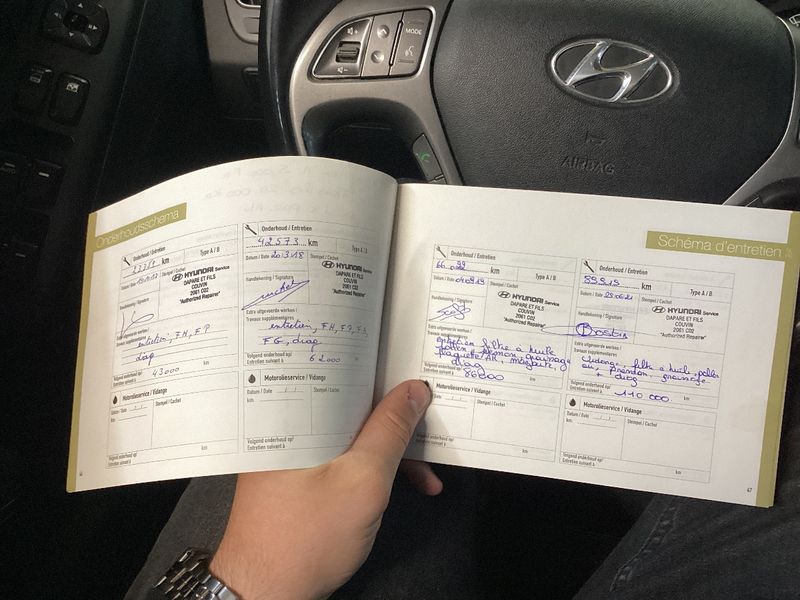 MODE
AIRBAG
Onderhoudsschema
Onderhoud / Entretien
km
Type A / B
Datum / Date
Stempel / Cachet
HYUNDAI Service
DAPARE ET FILS
COUVIN
2061 C02
"Authorized Repairer"
Handtekening / Signature
Extra uitgevoerde werken /
Travaux supplémentaires
entretien, FH, FP
diag
Volgend onderhoud op/
Entretien suivant à
43000
km
Motorolieservice / Vidange
Datum / Date
Stempel / Cachet
km
Volgend onderhoud op/
Entretien suivant à
km
Onderhoud / Entretien
42573 km
Type A / B
Datum / Date 20.3.18
Stempel / Cachet
HYUNDAI Service
DAPARE ET FILS
COUVIN
2061 C02
"Authorized Repairer"
Handtekening / Signature
Extra uitgevoerde werken /
Travaux supplémentaires
entretien, FH, FP,
FG, diag.
Volgend onderhoud op/
Entretien suivant à
62000
km
Motorolieservice / Vidange
Datum / Date
Stempel / Cachet
km
Volgend onderhoud op/
Entretien suivant à
46
Schéma d'entretien
Onderhoud / Entretien
km
Type A / B
Datum / Date
Stempel / Cachet
HYUNDAI Service
DAPARE ET FILS
COUVIN
2061 C02
"Authorized Repairer"
Handtekening / Signature
Extra uitgevoerde werken /
Travaux supplémentaires
entretien filtre à huile
pollen
plaquette AR
diag
86000
Motorolieservice / Vidange
Datum / Date
Stempel / Cachet
km
Volgend onderhoud op/
Entretien suivant à
km
Onderhoud / Entretien
km
Type A / B
Datum / Date
Stempel / Cachet
HYUNDAI Service
DAPARE ET FILS
COUVIN
2061 C02
"Authorized Repairer"
Handtekening / Signature
Extra uitgevoerde werken /
Travaux supplémentaires
vidange filtre à huile, pollen
diag
Volgend onderhoud op/
Entretien suivant à
110 000
km
Motorolieservice / Vidange
Datum / Date
Stempel / Cachet
km
Volgend onderhoud op/
Entretien suivant à
km
47